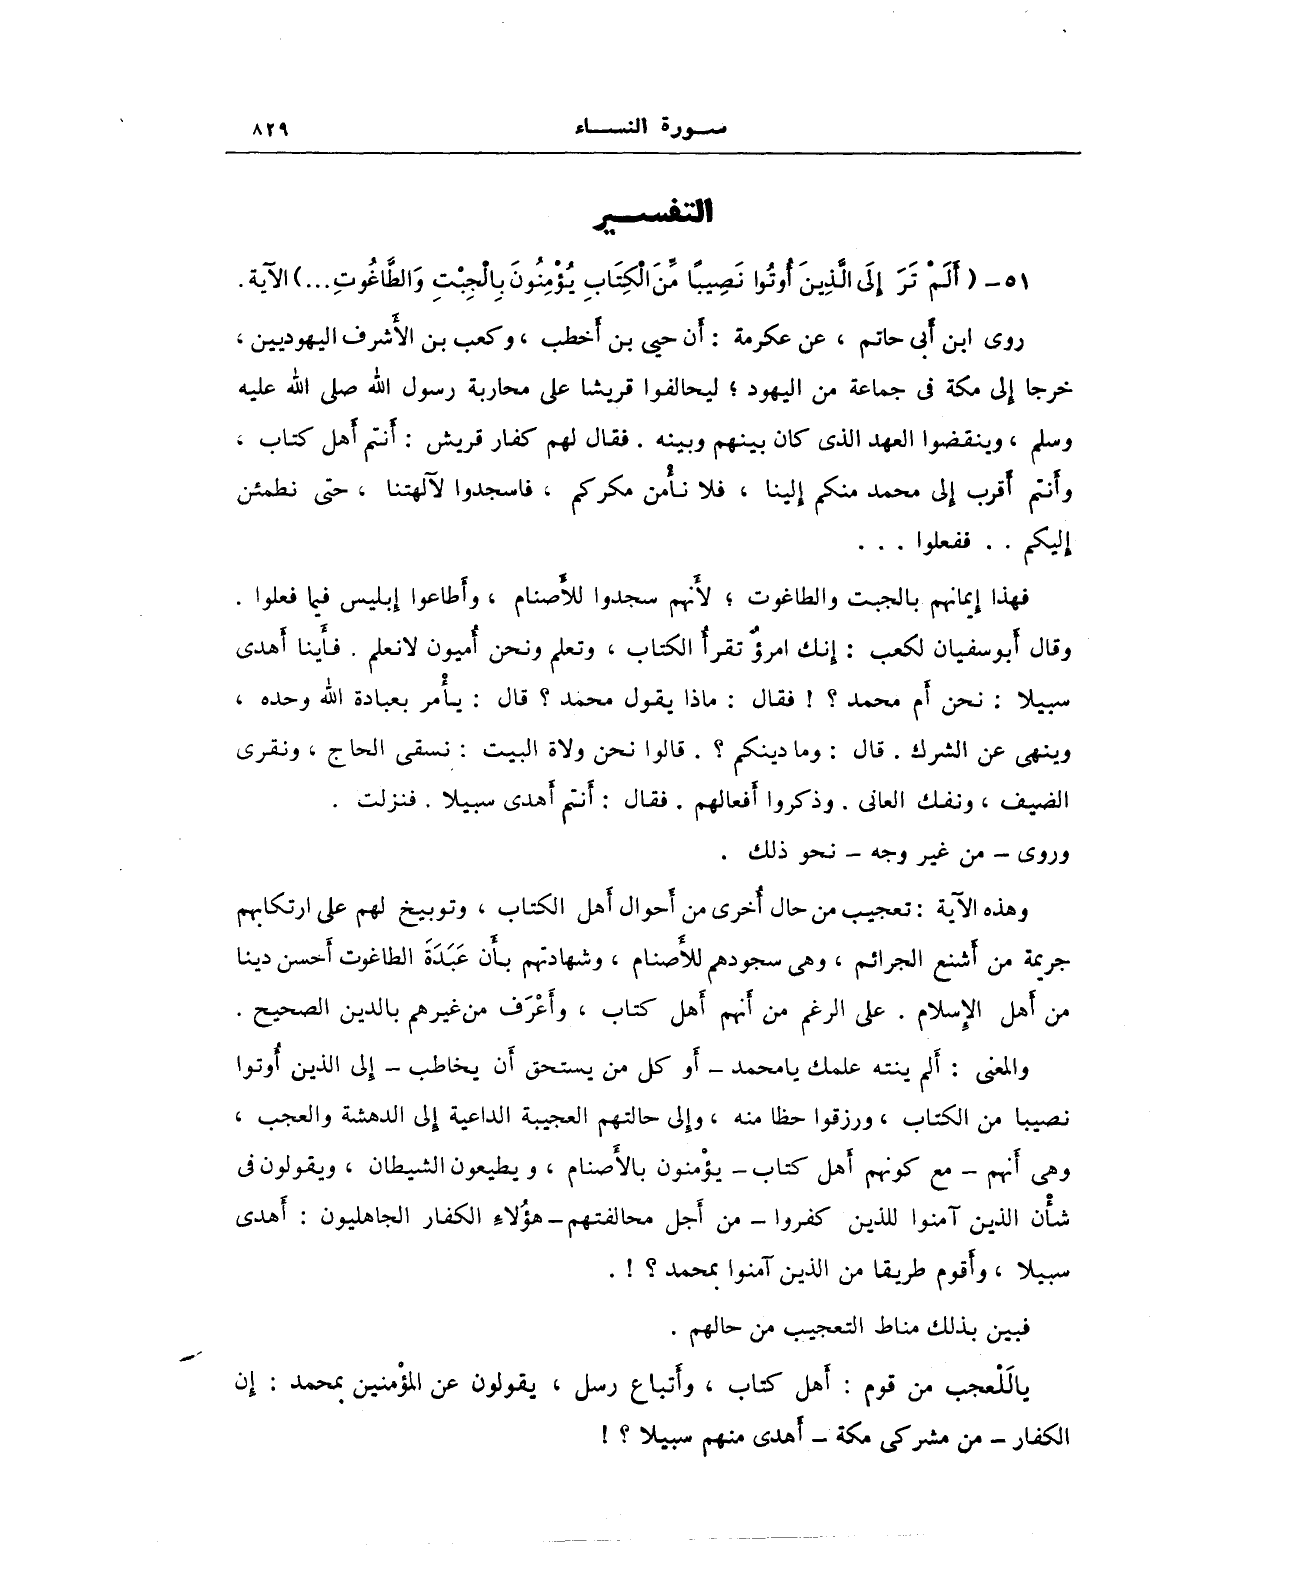 سورة النساء ٨٢٩
التفسير
٥١- (أَلَمْ تَرَ إِلَى الَّذِينَ أُوتُوا نَصِيبًا مِّنَ الْكِتَابِ يُؤْمِنُونَ بِالْجِبْتِ وَالطَّاغُوتِ...) الآية.
روى ابن أبى حاتم ، عن عكرمة : أن حيى بن أخطب ، وكعب بن الأشرف اليهوديين ،
خرجا إلى مكة فى جماعة من اليهود ؛ ليحالفوا قريشا على محاربة رسول الله صلى الله عليه
وسلم ، وينقضوا العهد الذى كان بينهم وبينه . فقال لهم كفار قريش : أنتم أهل كتاب ،
وأنتم أقرب إلى محمد منكم إلينا ، فلا نأْمن مكركم ، فاسجدوا لآلهتنا ، حتى نطمئن
إليكم . . ففعلوا . . .
فهذا إيمانهم بالجبت والطاغوت ؛ لأنهم سجدوا للأصنام ، وأطاعوا إبليس فيما فعلوا .
وقال أبو سفيان لكعب : إنك امرؤٌ تقرأُ الكتاب ، وتعلم ونحن أُميون لانعلم . فأينا أهدى
سبيلا : نحن أم محمد ؟ ! فقال : ماذا يقول محمد ؟ قال : يأْمر بعبادة الله وحده ،
وينهى عن الشرك . قال : وما دينكم ؟ . قالوا نحن ولاة البيت : نسقى الحاج ، ونقرى
الضيف ، ونفك العانى . وذكروا أفعالهم . فقال : أنتم أهدى سبيلا . فنزلت .
وروى – من غير وجه – نحو ذلك .
وهذه الآية : تعجيب من حال أُخرى من أحوال أهل الكتاب ، وتوبيخ لهم على ارتكابهم
جريمة من أشنع الجرائم ، وهى سجودهم للأصنام ، وشهادتهم بأن عَبَدَةَ الطاغوت أحسن دينا
من أهل الإسلام . على الرغم من أنهم أهل كتاب ، وأَعْرَف من غيرهم بالدين الصحيح .
والمعنى : ألم ينته علمك يامحمد – أو كل من يستحق أن يخاطب – إلى الذين أُوتوا
نصيبا من الكتاب ، ورزقوا حظا منه ، وإلى حالتهم العجيبة الداعية إلى الدهشة والعجب ،
وهى أنهم – مع كونهم أهل كتاب – يؤْمنون بالأصنام ، ويطيعون الشيطان ، ويقولون فى
شأْن الذين آمنوا للذين كفروا – من أجل محالفتهم – هؤُلاءِ الكفار الجاهليون : أهدى
سبيلا ، وأقوم طريقا من الذين آمنوا بمحمد ؟ ! .
فبين بذلك مناط التعجيب من حالهم .
يالَلْعجب من قوم : أهل كتاب ، وأتباع رسل ، يقولون عن المؤْمنين بمحمد : إن
الكفار – من مشركى مكة – أهدى منهم سبيلا ؟ !